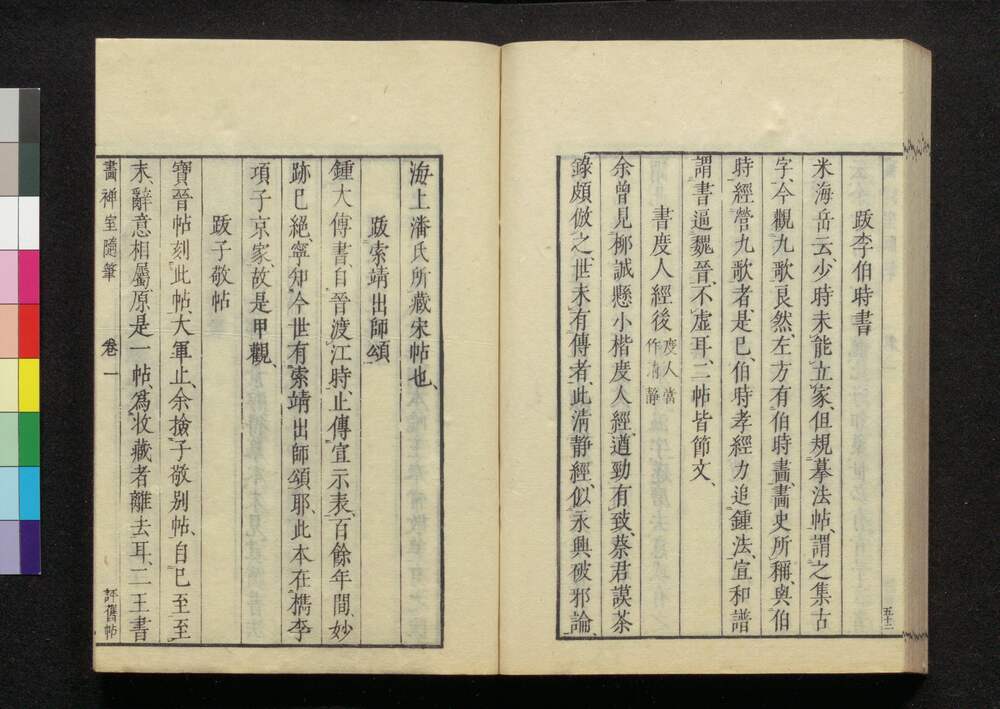 跋李伯時書
米海岳云、少時未能立家、但規摹法帖、謂之集古
字、今觀九歌良然、左方有伯時畵、畵史所稱、與伯
時經營九歌者、是已、伯時孝經力追鍾法、宣和譜
謂書逼魏晉、不虛耳、二帖皆節文、
書度人經後 度人當作清靜
余曾見柳誠懸小楷度人經、遒勁有致、蔡君謨茶
錄頗倣之、世未有傳者、此淸靜經、似永興破邪論、
五十二
海上潘氏所藏宋帖也、
跋索靖出師頌
鍾大傳書、自晉渡江時、止傳宣示表、百餘年間、妙
跡已絕、寧知今世有索靖出師頌耶、此本在檇李
項子京家、故是甲觀、
跋子敬帖
寶晉帖刻此帖、大軍止、余撿子敬別帖、自已至至
末、辭意相屬、原是一帖、爲收藏者離去耳、二王書
畵禪室隨筆 卷一 評舊帖